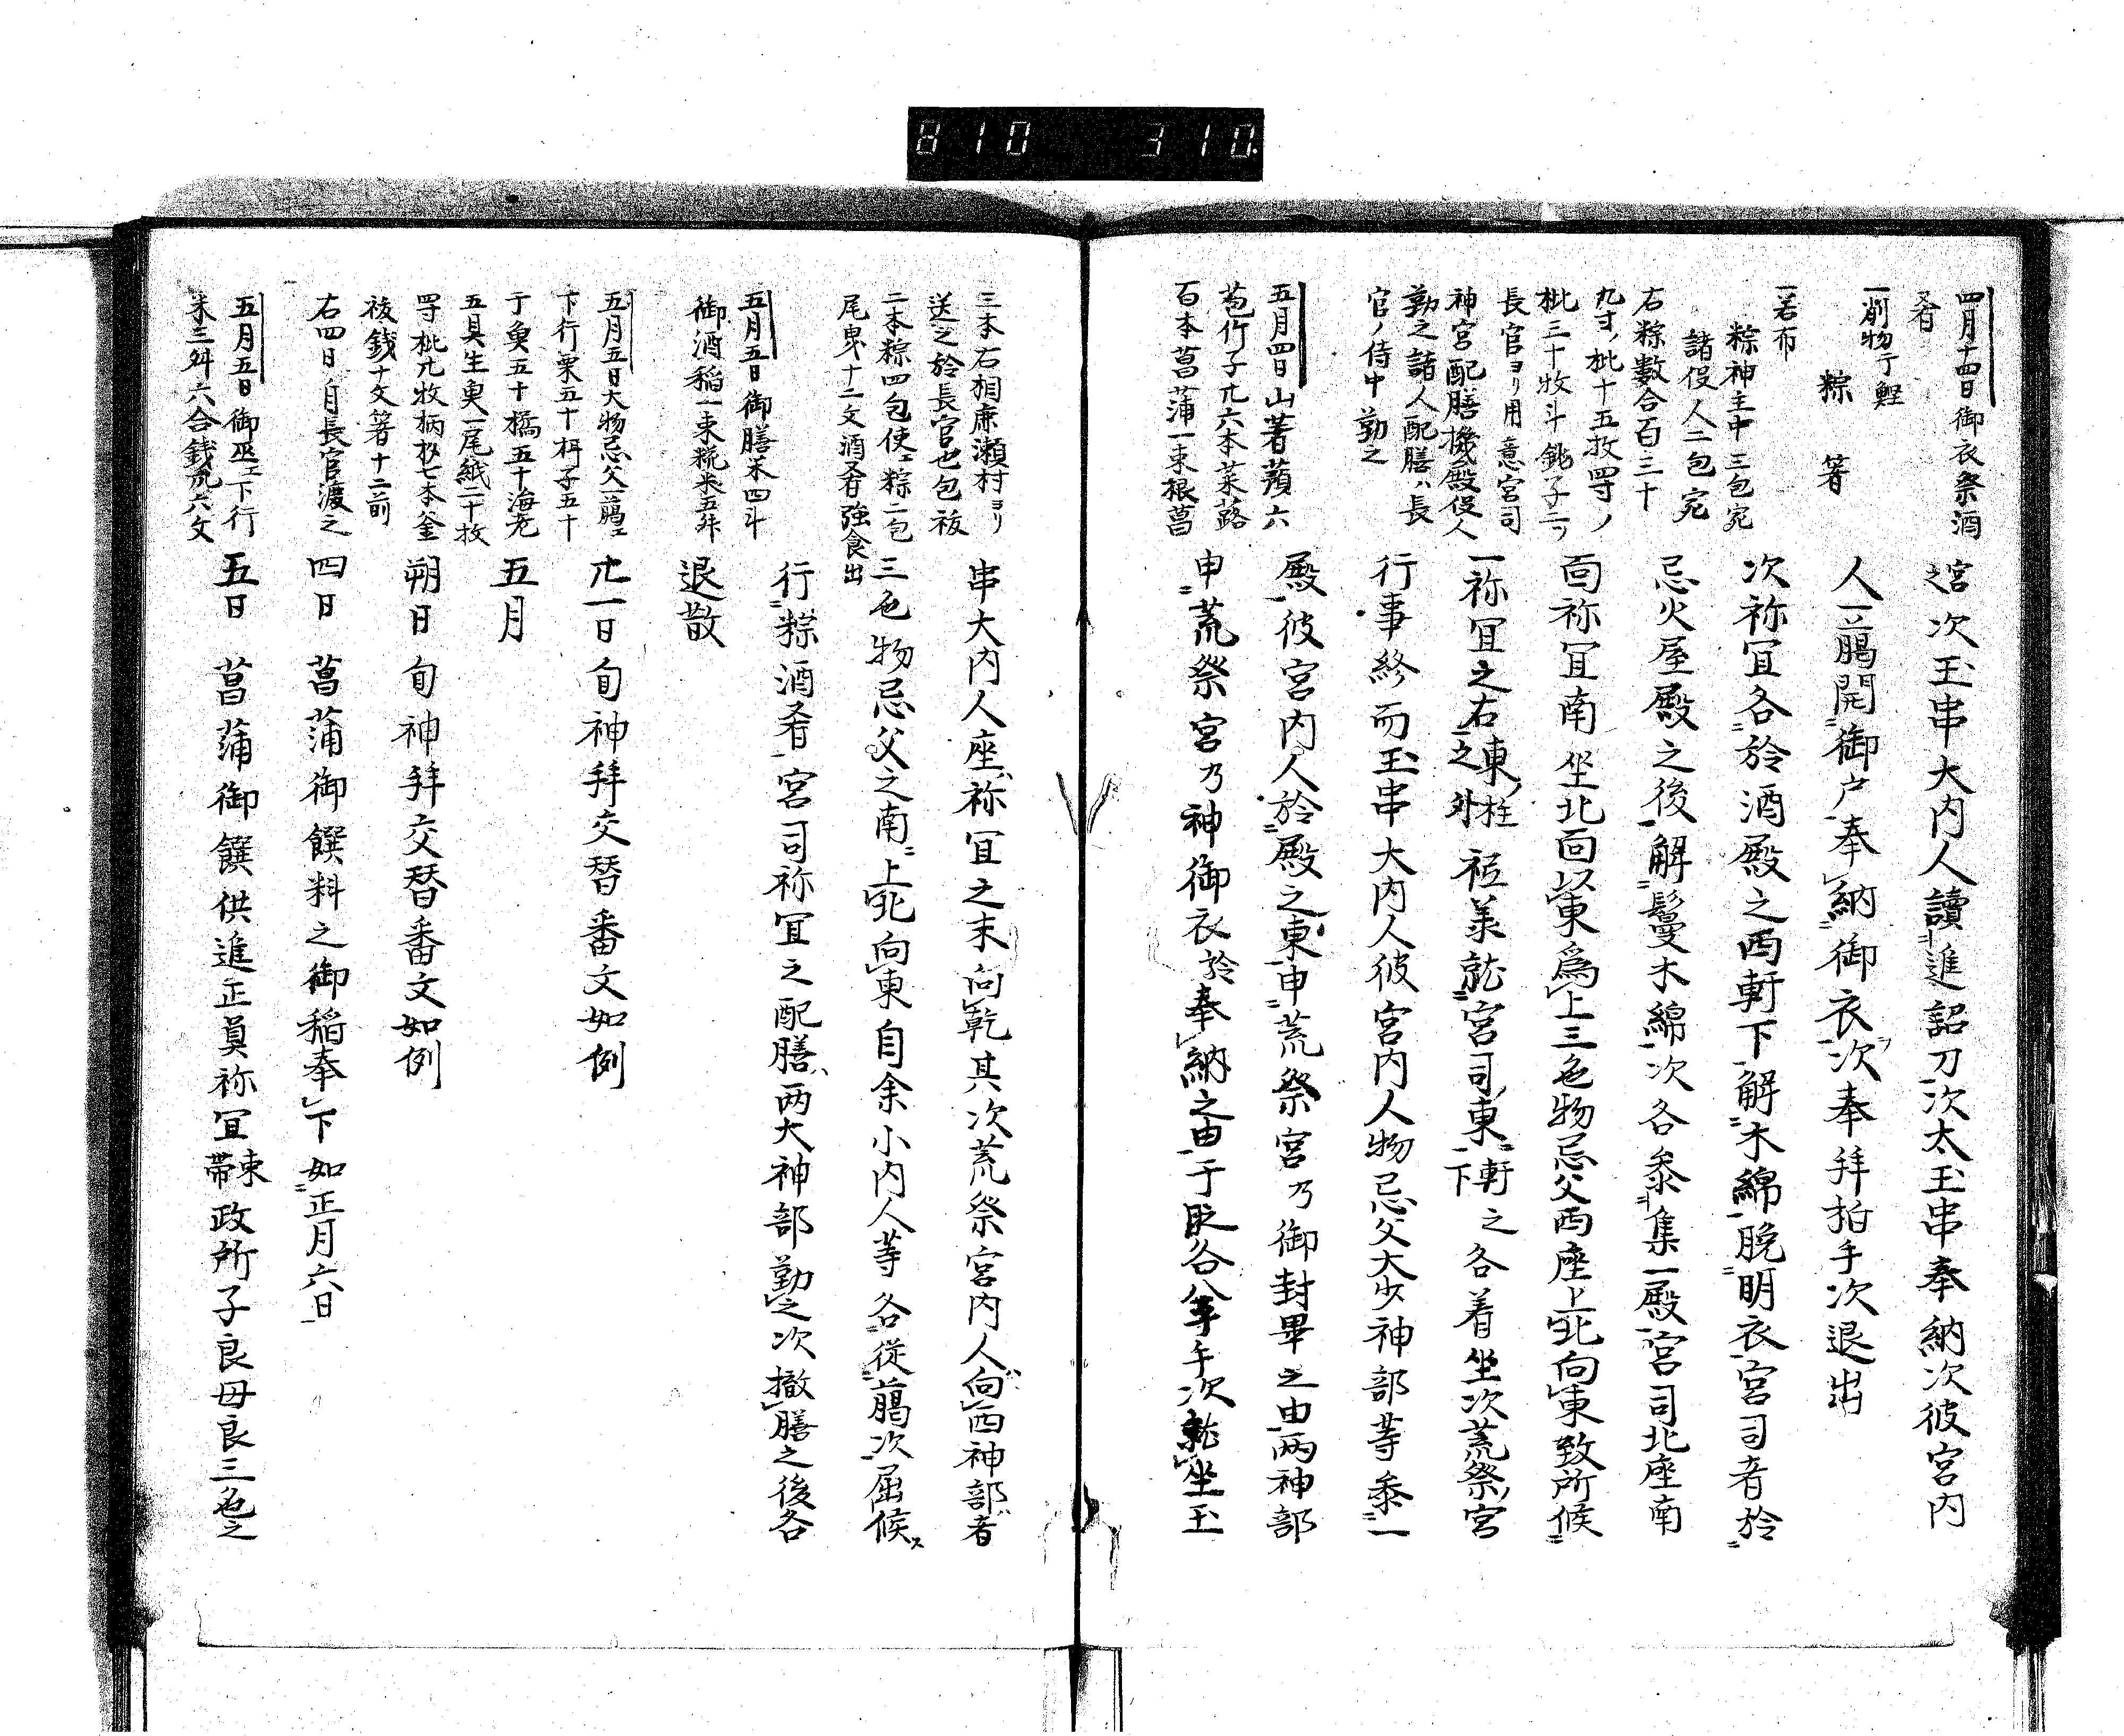 810 310.
四月十四日御衣祭酒
肴
一削物干鰹
粽 箸
一若布
粽神主中三包宛
諸役人二包宛
右粽数合百三十
九寸ノ枇十五枚四寸ノ
枇三十枚斗銚子二ツ
長官ヨリ用意宮司
神宮配膳機殿役人
勤之諸人配膳ハ長
官ノ侍中勤之
五月四日山著蕷六
苞竹子廿六本菜蕗
百本菖蒲一束根菖
宮之次玉串大内人讀進詔刀次太玉串奉納次彼宮内
人一﨟開御戸奉納御衣次奉拜拍手次退出
次祢冝各於酒殿之西軒下解木綿脱明衣宮司者於
忌火屋殿之後解鬘木綿次各黍集一殿宮司北座南
面祢冝南坐北面以東爲上三色物忌父西座上北向東致所候
一祢冝之右東ノ柱之外祗羕就宮司東軒下之各着坐次荒祭宮
行事終而玉串大内人彼宮内人物忌父大少神部等黍一
殿彼宮内人於殿之東申荒祭宮乃御封畢之由兩神部
申荒祭宮乃神御衣於奉納之由于時各八平手次就坐玉
三本右相鹿瀬村ヨリ
送之於長官也包祓
二本粽四包使ニ粽二包
尾曳十二文酒肴強食出
五月五日御膳米四斗
御酒稲一束糀米五舛
五月五日大物忌父一﨟ニ
下行栗五十枏子五十
干魚五十橋五十海老
五具生魚一尾紙二十枚
四寸枇廿枚柄杓七本釜
祓錢十文箸十二前
右四日自長官渡之
五月五日御巫ニ下行
米三舛六合錢六文
串大内人座祢冝之末向乾其次荒祭宮内人向西神部者
三色物忌父之南上北向東自余小内人等各從﨟次屈候ス
行粽酒肴宮司祢冝之配膳両大神部勤之次撤膳之後各
退散
廿一日旬神拜交替番文如例
五月
朔日旬神拜交替番文如例
四日菖蒲御饌料之御稲奉下如正月六日
五日菖蒲御饌供進正員祢冝束帯政所子良母良三色之